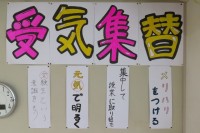 受気集替
元気で明るく
集中して
授業に取り組む
メリハリ
をつける